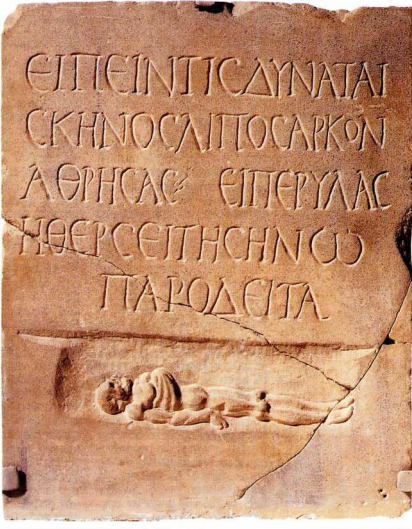 ΕΙΠΕΙΝΤΙCΔΥΝΑΤΑΙ
CΚΗΝΟCΛΙΠΟCΑΡΚΟΝ
ΑΘΡΗCΑC ΕΙΠΕΡΥΛΑC
ΗΘΕΡCΕΙΤΗCΗΝω
ΠΑΡΟΔΕΙΤΑ